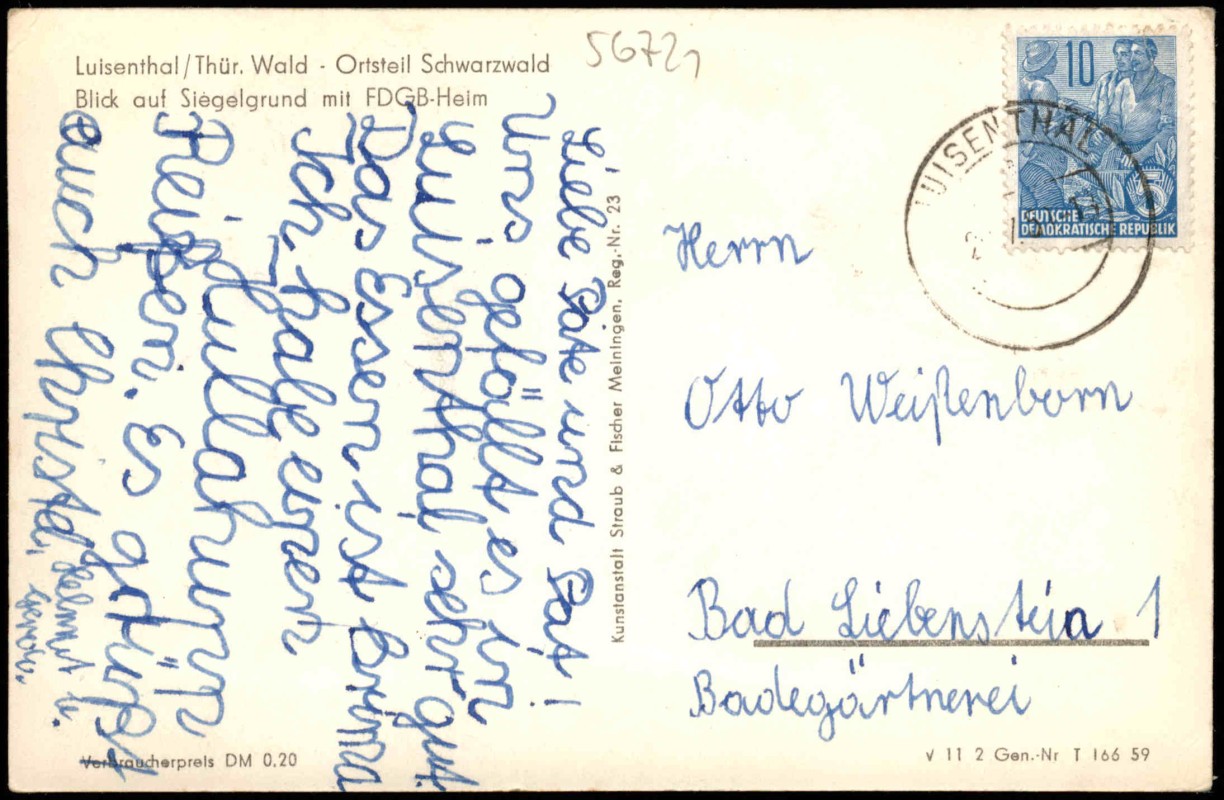 Luisenthal/Thür. Wald - Ortsteil Schwarzwald
Blick auf Siegelgrund mit FDGB-Heim
56721
Liebe Pate und Pat!
Uns gefällt es in
Luisenthal sehr gut.
Das Essen ist Brima
Ich habe einen
Reißfullahunp
Reißen. Es grüßt
auch Christa,
Helmut u.
Kunstanstalt Straub & Fischer Meiningen, Reg.-Nr. 23
10
5
DEUTSCHE
DEMOKRATISCHE REPUBLIK
LUISENTHAL
Herrn
Otto Weißenborn
Bad Liebenstein 1
Badegärtnerei
Verbraucherpreis DM 0.20
V 11 2 Gen.-Nr T 166 59